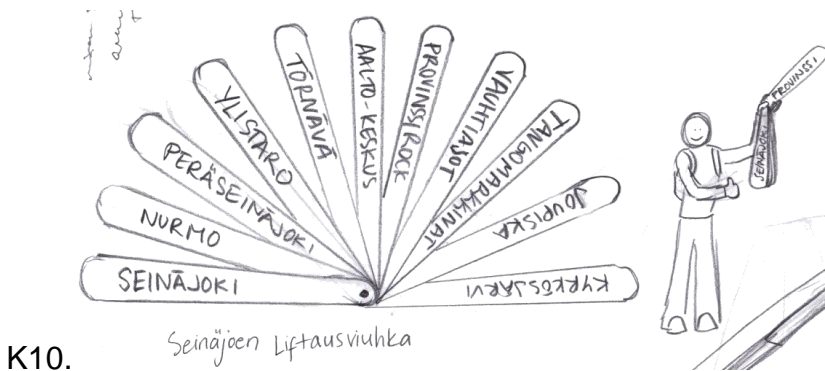 SEINÄJOKI
NURMO
PERÄSEINÄJOKI
YLISTARO
TÖRNÄVÄ
AALTO-KESKUS
PROVINSSIROCK
VAUHTIAJOT
TANGOMARKKINAT
JOUPISKA
KYRKÖSJÄRVI
PROVINSSI
SEINÄJOKI
Seinäjoen Liftausviuhka
K10.